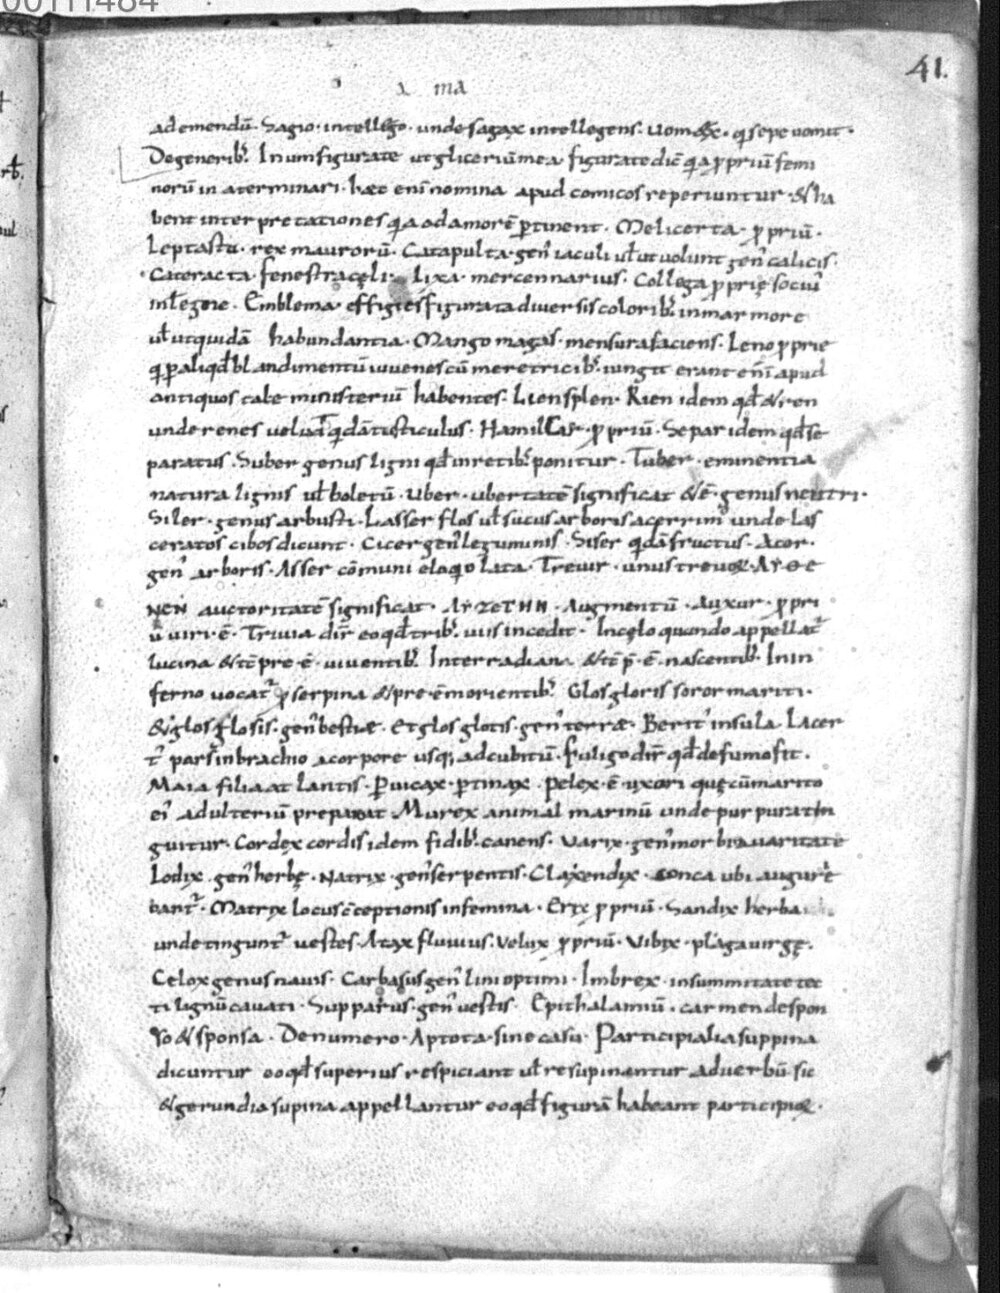 00111484
41.
λ ma
ademendū. Sagio. intellego. unde sagax intellegens. Uomax. q̄ sepe uomit.
De generib; In um figurate ut gliceriū mea figurate dic̄ q̄a ꝓpriū femi
norū in a terminari. hæc enī nomina apud comicos reperiuntur. & ha
bent interpretationes q̄a ad amorē ꝑtinent. Melicerta. ꝓpriū.
Leptasta. rex maurorū. Catapulta. gen̄ iaculi ut̄ ut uolunt gen̄ calicis.
Cateracta fenestra cęli. Lixa. mercennarius. Collega ꝓprie sociu᷒
int̄ Emblema effigies figurata diuersis colorib; in marmore
ut̄ ut quidā habundantia. Mango magas. mensura faciens. Leno ꝓprie
q̄ ꝑ aliqd̄ blandimentū iuuenes cū meretricib; iungit erant enī apud
antiquos tale ministeriū habentes. Lien splen. Rien idem qd̄ & ren
unde renes uelud q̄dā testiculus. Hamilcar ꝓpriū. Separ idem qd̄ se
paratus. Suber genus ligni qd̄ in retib; ponitur. Tuber. eminentia
natura lignis ut̄ boletū. Uber. ubertatē significat & ē. genus neutri.
Siler. genus arbusti. Lasser flos ut̄ sucus arboris acerrim᷒ unde las
ceratos cibos dicunt. Cicer gen᷒ leguminis. Siser q̄dā fructus. Acer.
gen᷒ arboris. Asser cōmuni eloq̄o lata. Treuir. unus treuor. ΑΥΘΕ
ΝΕΝ auctoritatē significat. Augmentū. Auxur. ꝓpri
ū uiri. ē. Triuia dir̄ eo qd̄ trib; uiis incedit. In cęlo quando appellat᷒
lucina & tc̄ pre. ē. uiuentib; In terra diana & tc̄ p̄. ē. nascentib; In in
ferno uocat᷒ ꝓserpina & pre. ē morientib; Glos gloris soror mariti.
& glos glosis. gen᷒ bestiæ. Et glos glotis. gen᷒ terræ. Berit᷒ insula. Lacer
t᷒ pars in brachio a corpore usq; ad cubitū. Fuligo dir̄ qd̄ de fumo fit.
Maia filia atlantis. Ꝑuicax. ꝑtinax. Pelex. ē. uxori quę cū marito
ei᷒ adulteriū preparat. Murex animal marinū unde purpura tin
guitur. Cordex cordis idem fidib; canens. Varix. gen᷒ morbi a uarietate
Lodix. gen᷒ herbę. Natrix. gen᷒ serpentis. Claxendix. conca ubi augure
bant᷒. Matrix locus cc̄eptionis in femina. Erix ꝓpriū. Sandix herba
unde tingunt᷒ uestes. Atax fluuius. Velux ꝓpriū. Vibix. plaga uirgę.
Celox genus nauis. Carbasus gen᷒ lini optimi. Imbrex. in summitate tec
ti lignū cauati. Supparus. gen᷒ uestis. Epithalamiū. carmen de spon
so & sponsa. De numero. Aptota. sine casu. Participialia suppina
dicuntur eo qd̄ superius respiciant ut̄ resupinantur aduerbiū. sic
& gerundia supina appellantur eo qd̄ figurā habeant participiorum.